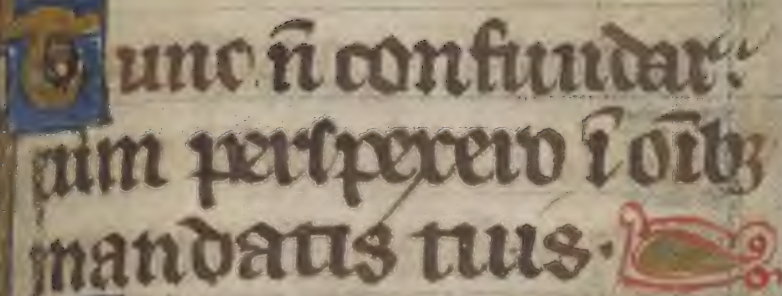 Tunc n̄ confundar:
cum perspexero ī oībꝫ
mandatis tuis·